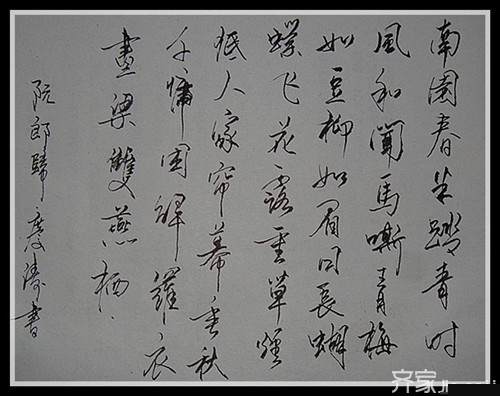 南園春半踏青时
風和聞馬嘶青梅
如豆柳如眉日長蝴
蝶飞花露重草煙
低人家帘幕垂秋
千慵困解羅衣
畫梁雙燕栖
阮郎歸度濤書
齐家